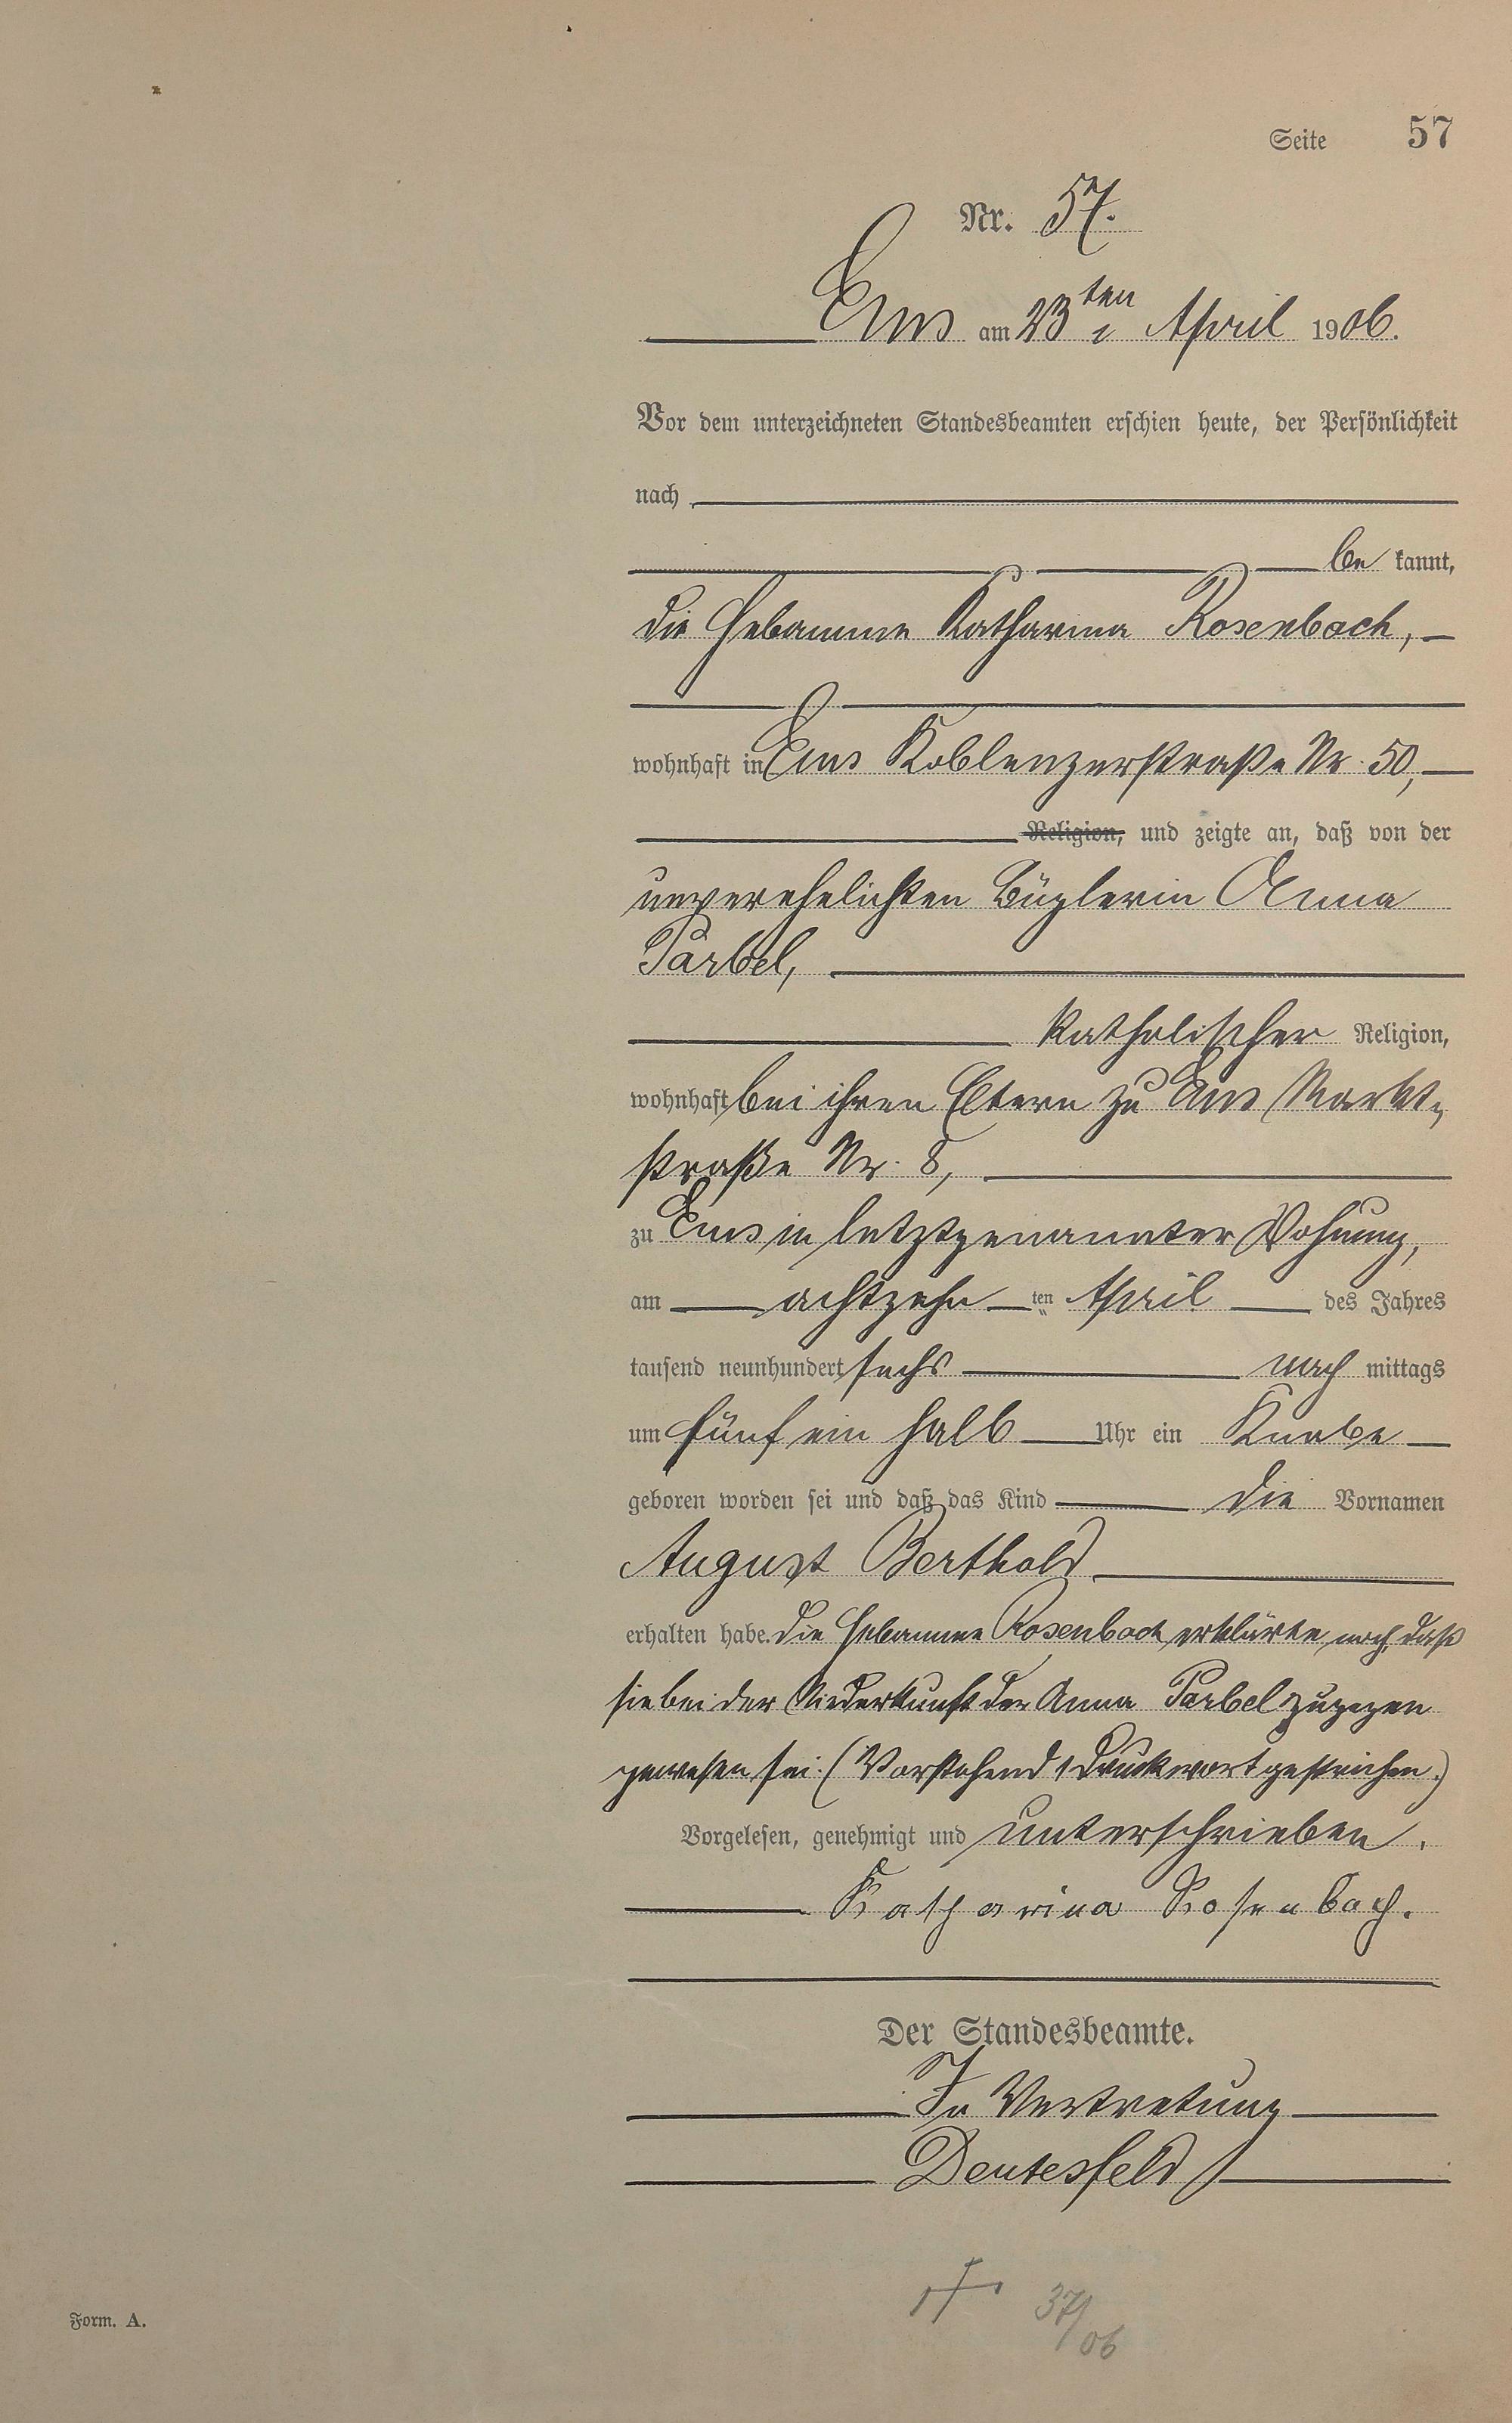 Seite 57
Nr. 57.
Ems am 23ten April 1906.
Vor dem unterzeichneten Standesbeamten erschien heute, der Persönlichkeit
nach
be kannt,
die Hebamme Katharina Rosenbach,
wohnhaft in Ems Koblenzerstraße Nr. 50,
Religion, und zeigte an, daß von der
unverehelichten Büglerin Anna
Parbel,
katholischer Religion,
wohnhaft bei ihren Eltern zu Ems Markt-
straße Nr. 8,
zu Ems in letztgenannter Wohnung,
am achtzehn ten April des Jahres
tausend neunhundert sechs nach mittags
um fünf ein halb Uhr ein Knabe
geboren worden sei und daß das Kind die Vornamen
August Berthold
erhalten habe. Die Hebamme Rosenbach erklärte noch, daß
sie bei der Niederkunft der Anna Parbel zugegen
gewesen sei. (Vorstehend 1 Druckwort gestrichen.)
Vorgelesen, genehmigt und unterschrieben.
Katharina Rosenbach.
Der Standesbeamte.
In Vertretung
Deutesfeld
† 37/06
Form. A.